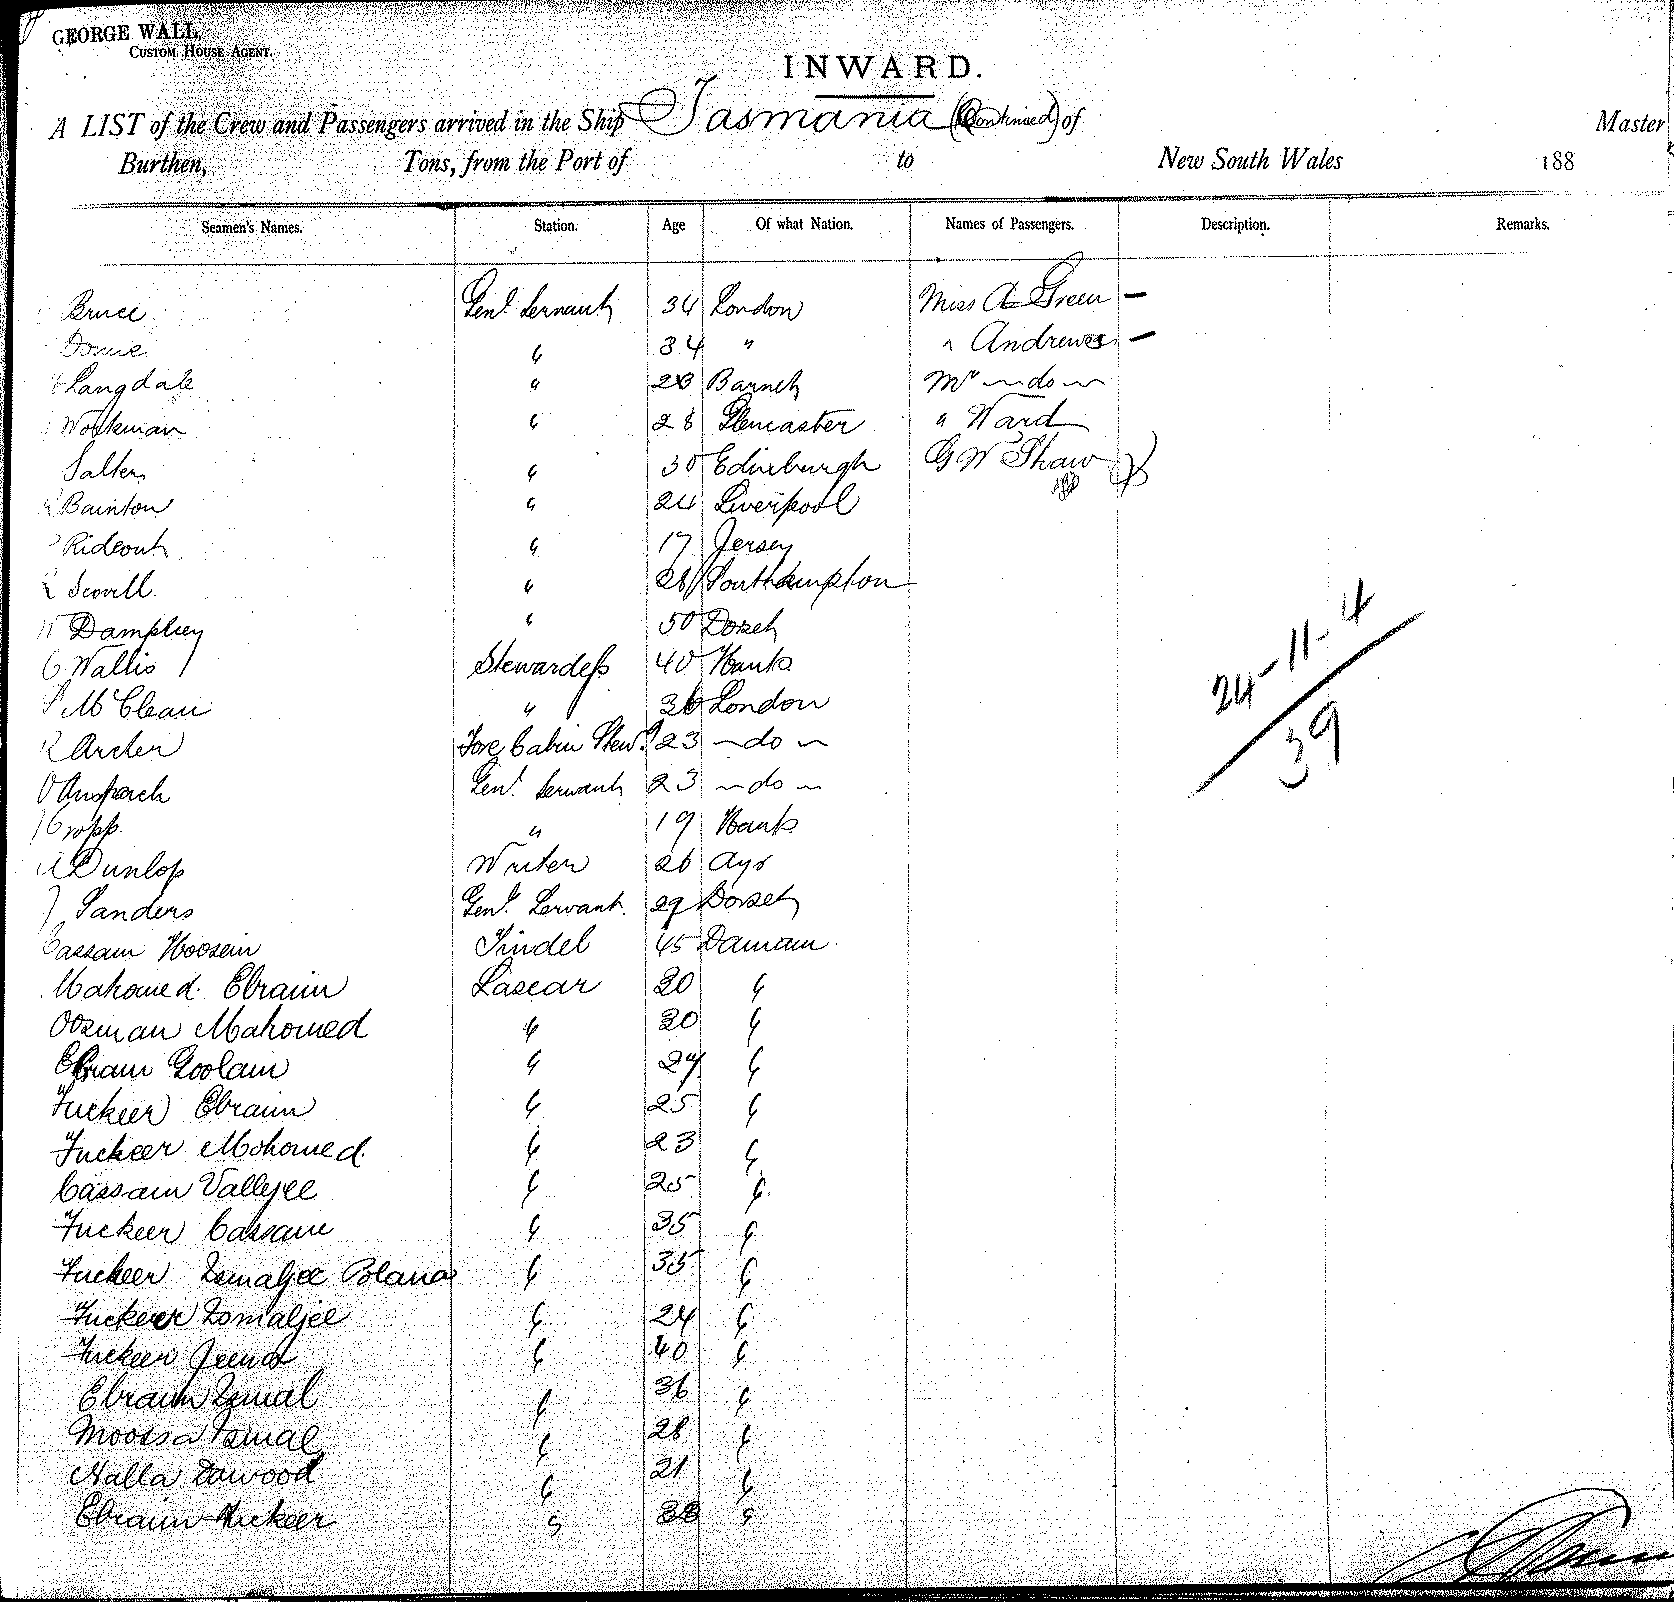 GEORGE WALL,
CUSTOM HOUSE AGENT.
INWARD.
A LIST of the Crew and Passengers arrived in the Ship Tasmania (Continued) of Master
Burthen, Tons, from the Port of to New South Wales 188
Seamen's Names. Station. Age Of what Nation. Names of Passengers. Description. Remarks.
Bruce Genl. Servant 34 London Miss A Green —
34 " " Andrewes —
Langdale " Barnet Mr — do —
Workman " 28 " Ward
Salter " 30 Edinburgh G W Shaw
Bainton " 24 Liverpool
Rideout " 17 Jersey
Scovill " 28 Southampton
Damphey " 50 Dorset
Wallis Stewardess 40 Hants
McClean " 36 London
Archer Fore Cabin Stewd. 23 — do —
Anspach Genl. Servant 23 — do —
Cropp. " 19 Hants
Dunlop Writer 26 Ayr
Sanders Genl. Servant. 29 Dorset
Cassam Hoosein Tindel 45 Damam
Mahomed Ebraim Lascar 20 "
Oosman Mahomed " 20 "
Ebram Goolam " 27 "
Fuckeer Ebraim " 25 "
Fuckeer Mohomed " 23 "
Cassam Valleyjee " 25 "
Fuckeer Cassam " 35 "
Fuckeer Esmaljee Blana " 35 "
Fuckeer Esmaljee " 24 "
Fuckeer Jeena " 40 "
Ebraim Esmal " 36 "
Moossa Esmal " 28 "
Nalla Dawood " 21 "
Ebraim Fuckeer " 38 "
24-11-4
39